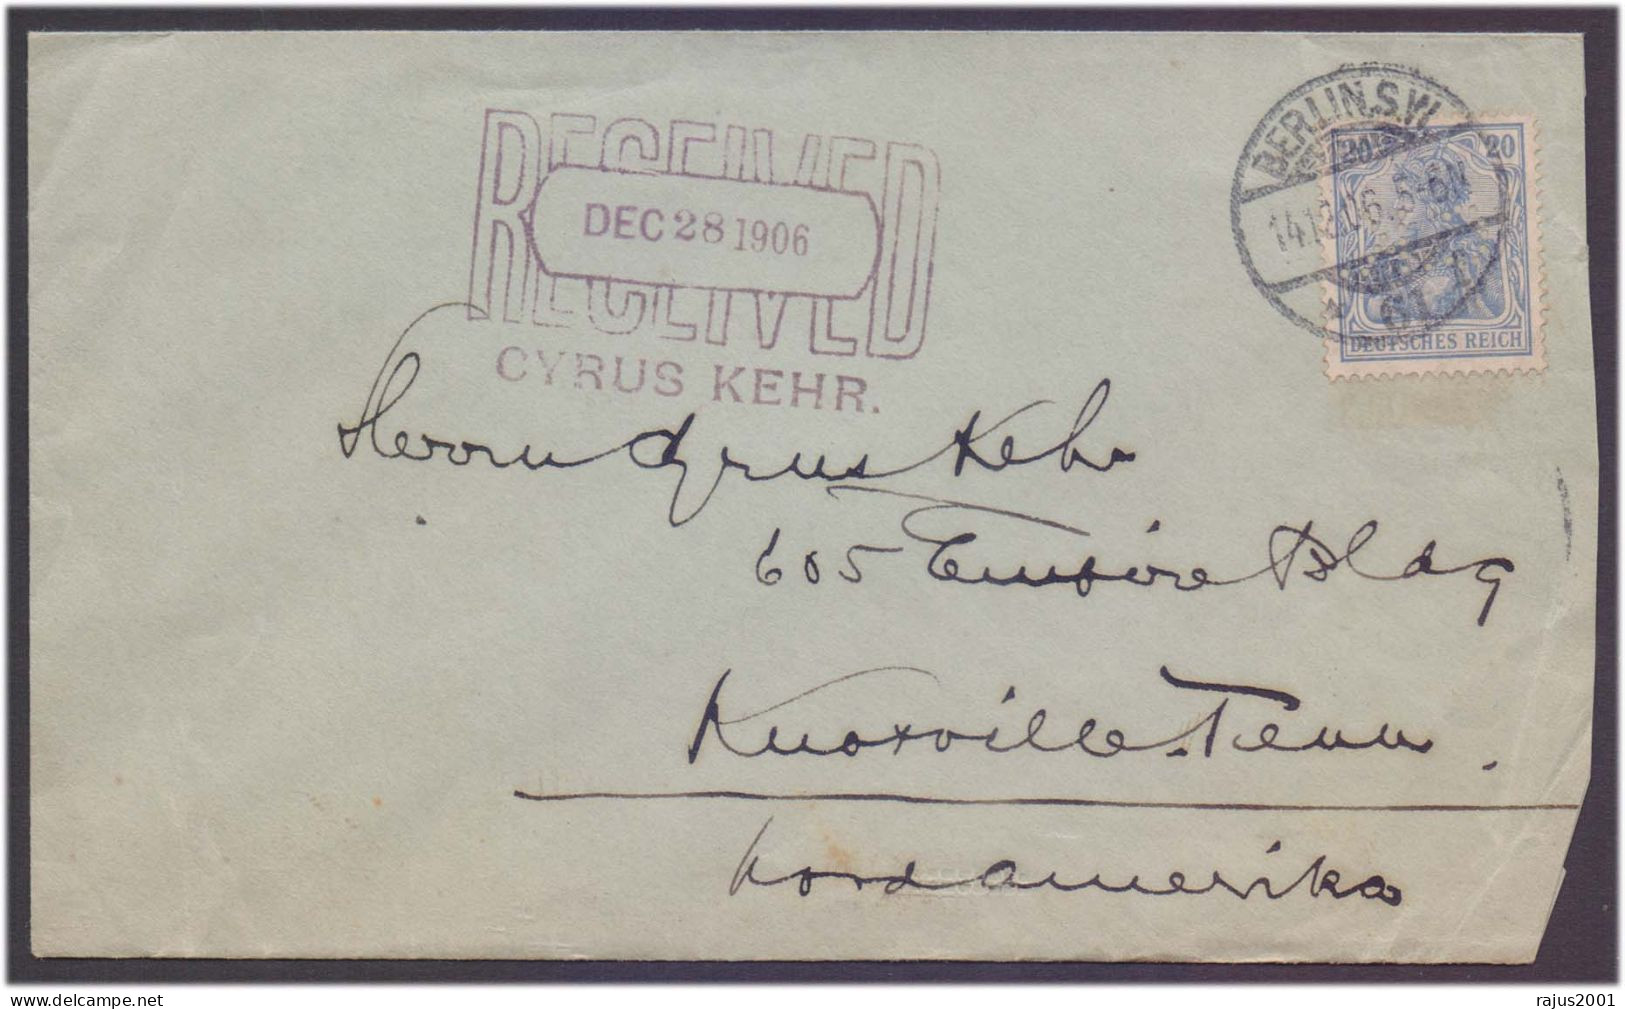 BERLIN.S.W.
14.12.06.5-6N
61
20 20
DEUTSCHES REICH
RECEIVED
DEC 28 1906
CYRUS KEHR.
Herrn Cyrus Kehr
605 Empire Bldg
Knoxville Tenn.
Nordamerika
www.delcampe.net
rajus2001